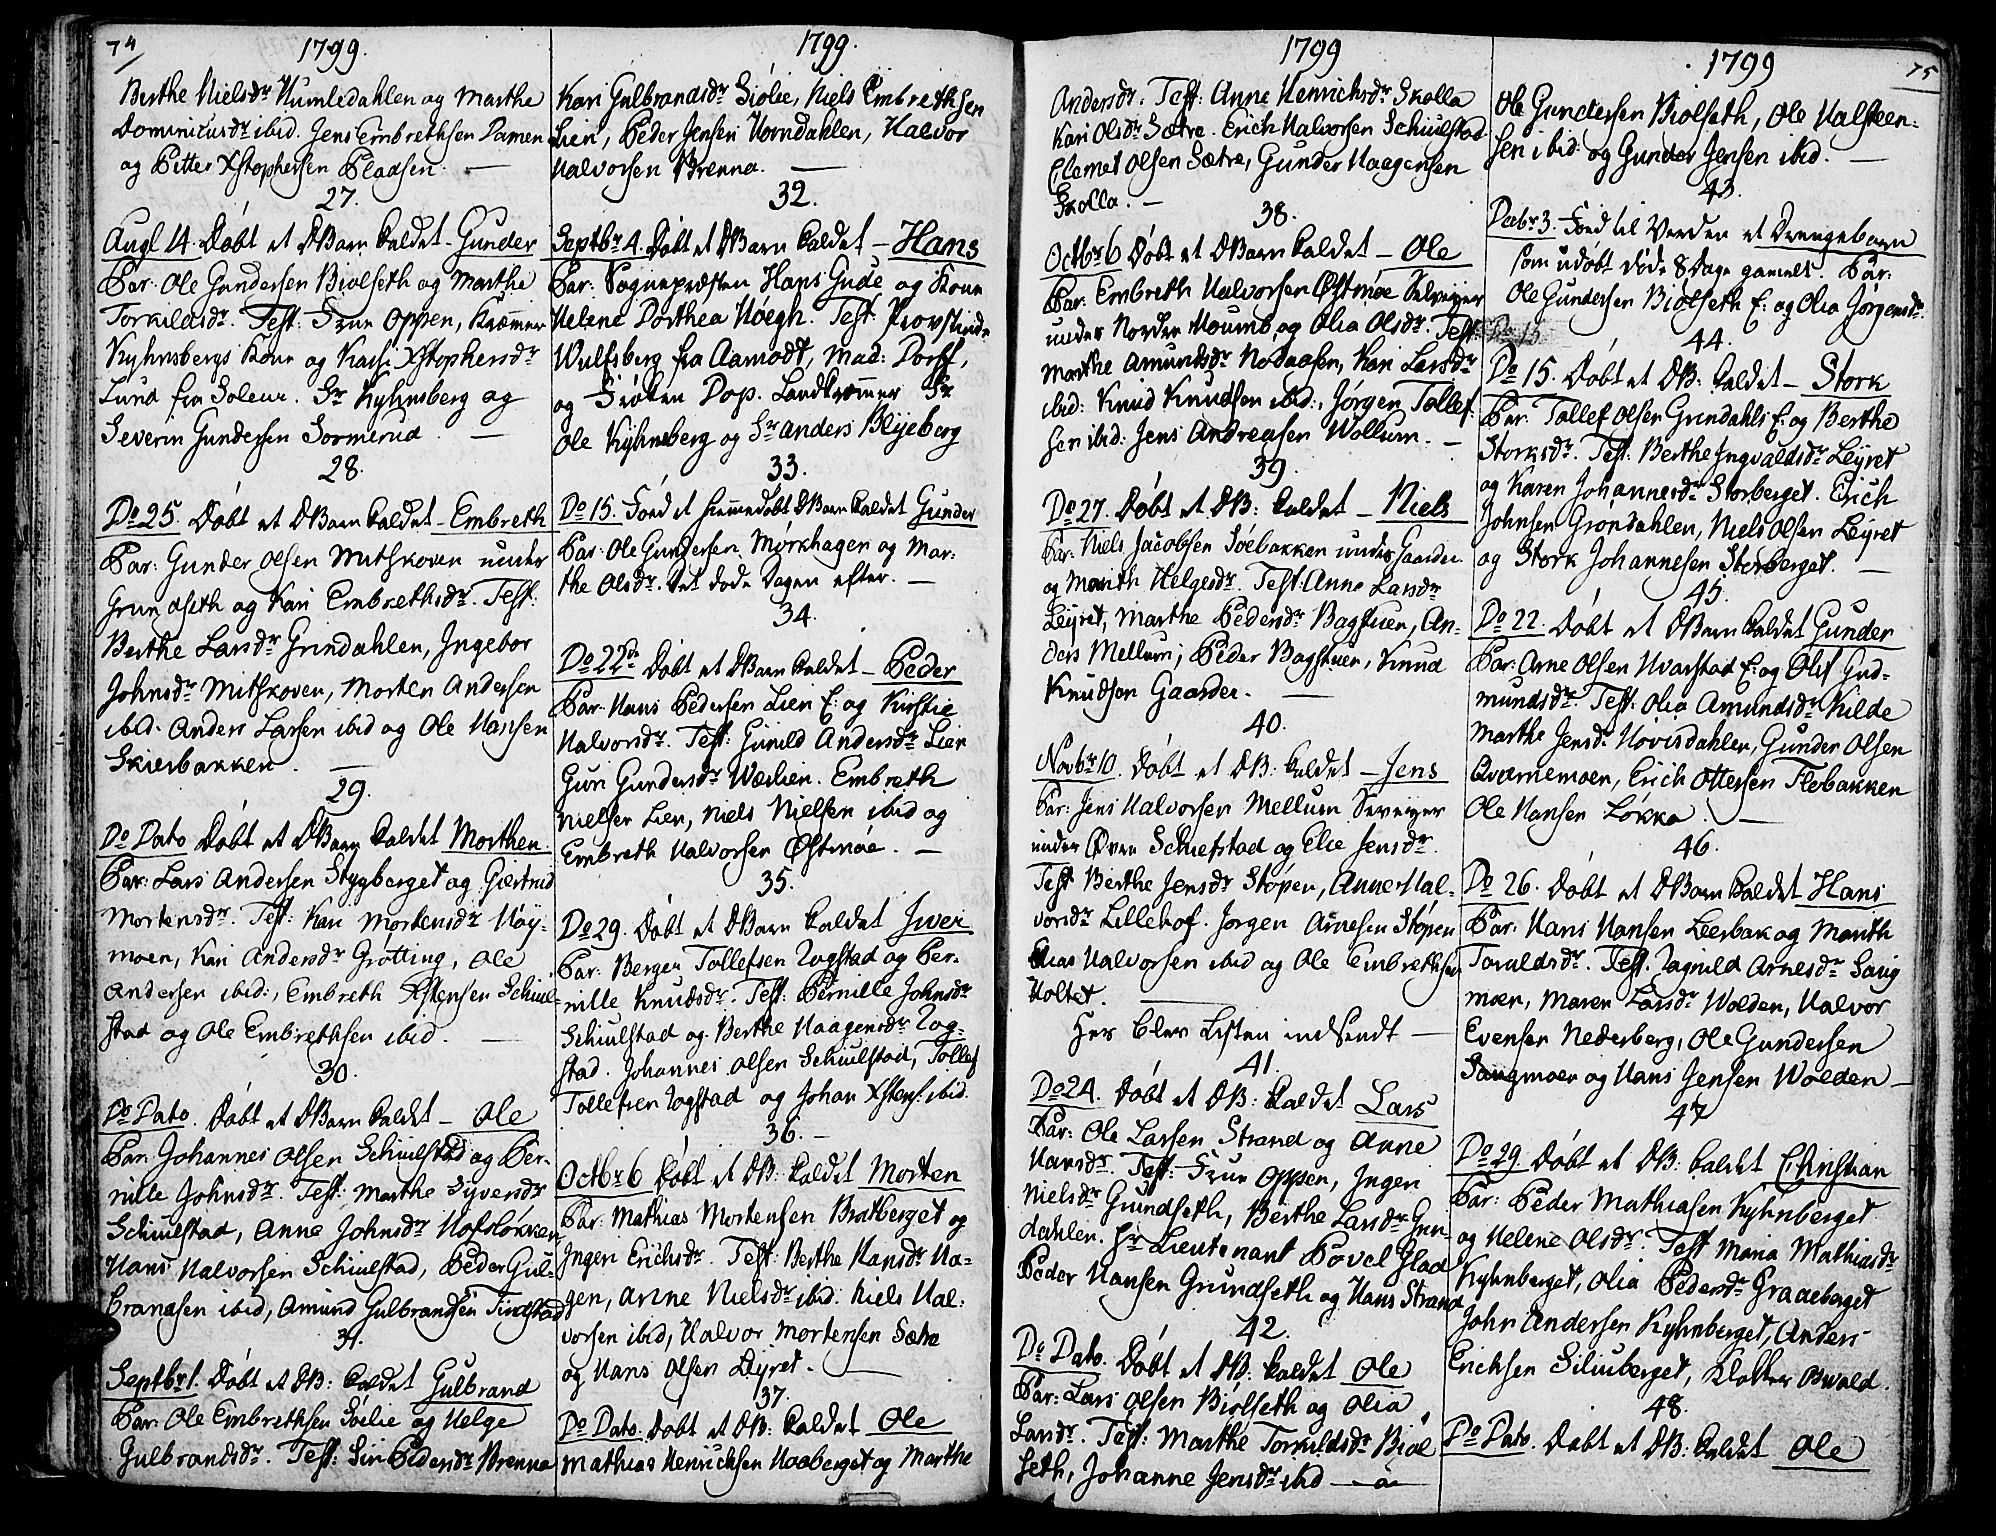 74
1799.
Berthe Nielsdr Humledahlen og Marthe
Dominicusdr ibid. Jens Embrethsen Damen
og Petter Xstophersen Pladsen. —
27.
Augl 14. Døbt et DBarn kaldet – Gunder
Par: Ole Gundersen Biølseth og Marthe
Torkildsdr. Test: Frue Oppen, Kræmmer
Kyhnsbergs Kone og Kari Xstophersdr
Lund fra Soleur. Sr Kyhnsberg og
Severin Gundersen Sormerud. —
28.
Do 25. Døbt et DBarn kaldet – Embreth
Par: Gunder Olsen Mitskoven under
Grundseth og Kari Embrethsdr. Test:
Berthe Larsdr Grindahlen, Ingebor
Johnsdr Mitskoven, Morten Andersen
ibid. Anders Larsen ibid og Ole Hansen
Skierbakken. —
29.
Do Dato Døbt et DBarn kaldet Morthen
Par: Lars Andersen Stygberget og Giertrud
Mortensdr. Test: Kari Mortensdr Høy-
moen, Kari Andersdr Grøtting, Ole
Andersen ibid:, Embreth Xstensen Schiul-
stad og Ole Embrethsen ibid. —
30.
Do Dato. Døbt et DBarn kaldet – Ole
Par. Johannes Olsen Schiulstad og Per-
nille Johnsdr. Test: Marthe Syversdr
Schiulstad, Anne Johnsdr Hofsløkken
Hans Halvorsen Schiulstad, Peder Gul-
brandsen ibid, Amund Gulbrandsen Findstad
31.
Septbr 1. Døbt et DB: kaldet Gulbrand
Par: Ole Embrethsen Søelie og Helge
Gulbrandsdr. Test: Siri Pedersdr Brenna
1799.
Kari Gulbrandsdr Siølie, Niels Embrethsen
Lien, Peder Jensen Horndahlen, Halvor
Halvorsen Brenna. —
32.
Septbr 4. Døbt et DBarn kaldet – Hans
Par: Sognepræsten Hans Gude og Kone
Helene Dorthea Høegh. Test: Provstinde
Wulfsberg fra Aamodt, Mad: Dorff,
og Frøken Dop. Landkræmmer Sr
Ole Kyhnsberg og Sr Anders Blyeberg
33.
Do 15. Fød et hiemmedøbt DBarn kaldet Gunder
Par: Ole Gundersen Mørkhagen og Mar:
the Olsdr. Det døde Dagen efter. —
34.
Do 22de Døbt et DBarn kaldet – Peder
Par: Hans Pedersen Lien E: og Kirstie
Halvorsdr. Test: Gunild Andersdr Lien
Guri Gundersdr Wæslien. Embreth
Nielsen Lien, Niels Nielsen ibid og
Embreth Halvorsen Østmøe. —
35.
Do 29. Døbt et DBarn kaldet Iwer
Par: Berger Tollefsen Zogstad og Per-
nille Knudsdr. Test: Pernille Johnsdr
Schiulstad og Berthe Haagensdr Zog-
stad. Johannes Olsen Schiulstad, Tollef
Tollefsen Zogstad og Johan Xstens: ibid.
36. –
Octbr 6 Døbt et DB: kaldet Morten
Par: Mathias Mortensen Bratberget og
Ingen Erichsdr. Test: Berthe Hansdr Ha-
gen, Anne Nielsdr ibid. Niels Hal:
vorsen ibid, Halvor Mortensen Sætre
og Hans Olsen Leyret. —
37.
Do Dato. Døbt et DB: kaldet Ole
Mathias Henrichsen Haaberget og Marthe
1799
Andersdr. Test: Anne Henrichsdr Skolla
Kari Olsdr Sætre. Erich Halvorsen Schiulstad
Clemet Olsen Sætre, Gunder Haagensen
Skolla. —
38.
Octbr 6 Døbt et DBarn kaldet – Ole
Par: Embreth Halvorsen Østmøe Selveyer
under Nordre Houmb og Olia Olsdr. Test
Marthe Amundsdr Nødaasen, Kari Larsdr
ibid: Knud Knudsen ibid:, Jørgen Tollef-
sen ibid: Jens Andreasen Wollum. —
39.
Do 27. Døbt et DB: kaldet – Niels
Par: Niels Jacobsen Søebakken under Gaarder
og Marith Helgesdr. Test: Anne Larsdr
Leyret, Marthe Pedersdr Bagstuen, An-
ders Mellum, Peder Bagstuen, Knud
Knudsen Gaarder. —
40.
Novbr 10. Døbt et DB: kaldet – Jens
Par: Jens Halvorsen Mellum Seveyer
under Øvre Schiefstad og Elie Jensdr.
Test Berthe Jensdr Støpen, Anne Hal-
vorsdr Lillehof. Jørgen Arnesen Støpen
Elias Halvorsen ibid og Ole Embrethsen
Holtet. —
Her blev Listen indsendt —
41.
Do 24. Døbt et DB: kaldet Lars
Par: Ole Larsen Strand og Anne
Hansdr. Test: Frue Oppen, Ingen
Nielsdr Grundseth, Berthe Larsdr Grin-
dahlen. Hr Lieutenant Povel Glad
Peder Hansen Grundseth og Hans Strand
42.
Do Dato. Døbt et DB: kaldet Ole
Par: Lars Olsen Biølseth og Olia
Larsdr. Test: Marthe Torkildsdr Biøl
seth, Johanne Jensdr ibid —
1799
75
Ole Gundersen Biølseth, Ole Halsteen-
sen ibid: og Gunder Jensen ibid. —
43.
Decbr 3. Fød til Verden et Drengebarn
som udøbt døde 8 Dage gammelt. Par:
Ole Gundersen Biølseth E: og Olia Jørgensdr.
Do 15
44.
Do 15. Døbt et DB: kaldet – Stork
Par: Tollef Olsen Grindahls E: og Berthe
Storksdr. Test: Berthe Ingvaldsdr Leyret
og Karen Johannesdr Storberget. Erich
Johnsen Grøndahlen, Niels Olsen Leyret
og Stork Johannesen Storberget. —
45.
Do 22. Døbt et DBarn kaldet Gunder
Par: Arne Olsen Hvarstad E: og Oluf Gud-
mundsdr. Test: Olia Amundsdr Kilde
Marthe Jensdr Hovisdahlen, Gunder Olsen
Qværnemoen, Erich Ottersen Flebakken
Ole Hansen Løkka. —
46.
Do 26. Døbt et DBarn kaldet Hans
Par: Hans Hansen Leerbak og Marith
Toruldsdr. Test. Ragnild Arnesdr Saug
moen, Maren Larsdr Wolden, Halvor
Evensen Nederberg, Ole Gundersen
Saugmoen og Hans Jensen Wolden —
47
Do 29 Døbt et DB: kaldet Christian
Par: Peder Mathiasen Kyhnberget
og Helene Olsdr. Test Maria Mathiasdr
Kyhnberget, Olia Pedersdr Graaberget
John Andersen Kyhnberget, Anders
Erichsen Siliuberget, Klokker Oswald.
48.
Do Dato. Døbt et DB: kaldet Ole